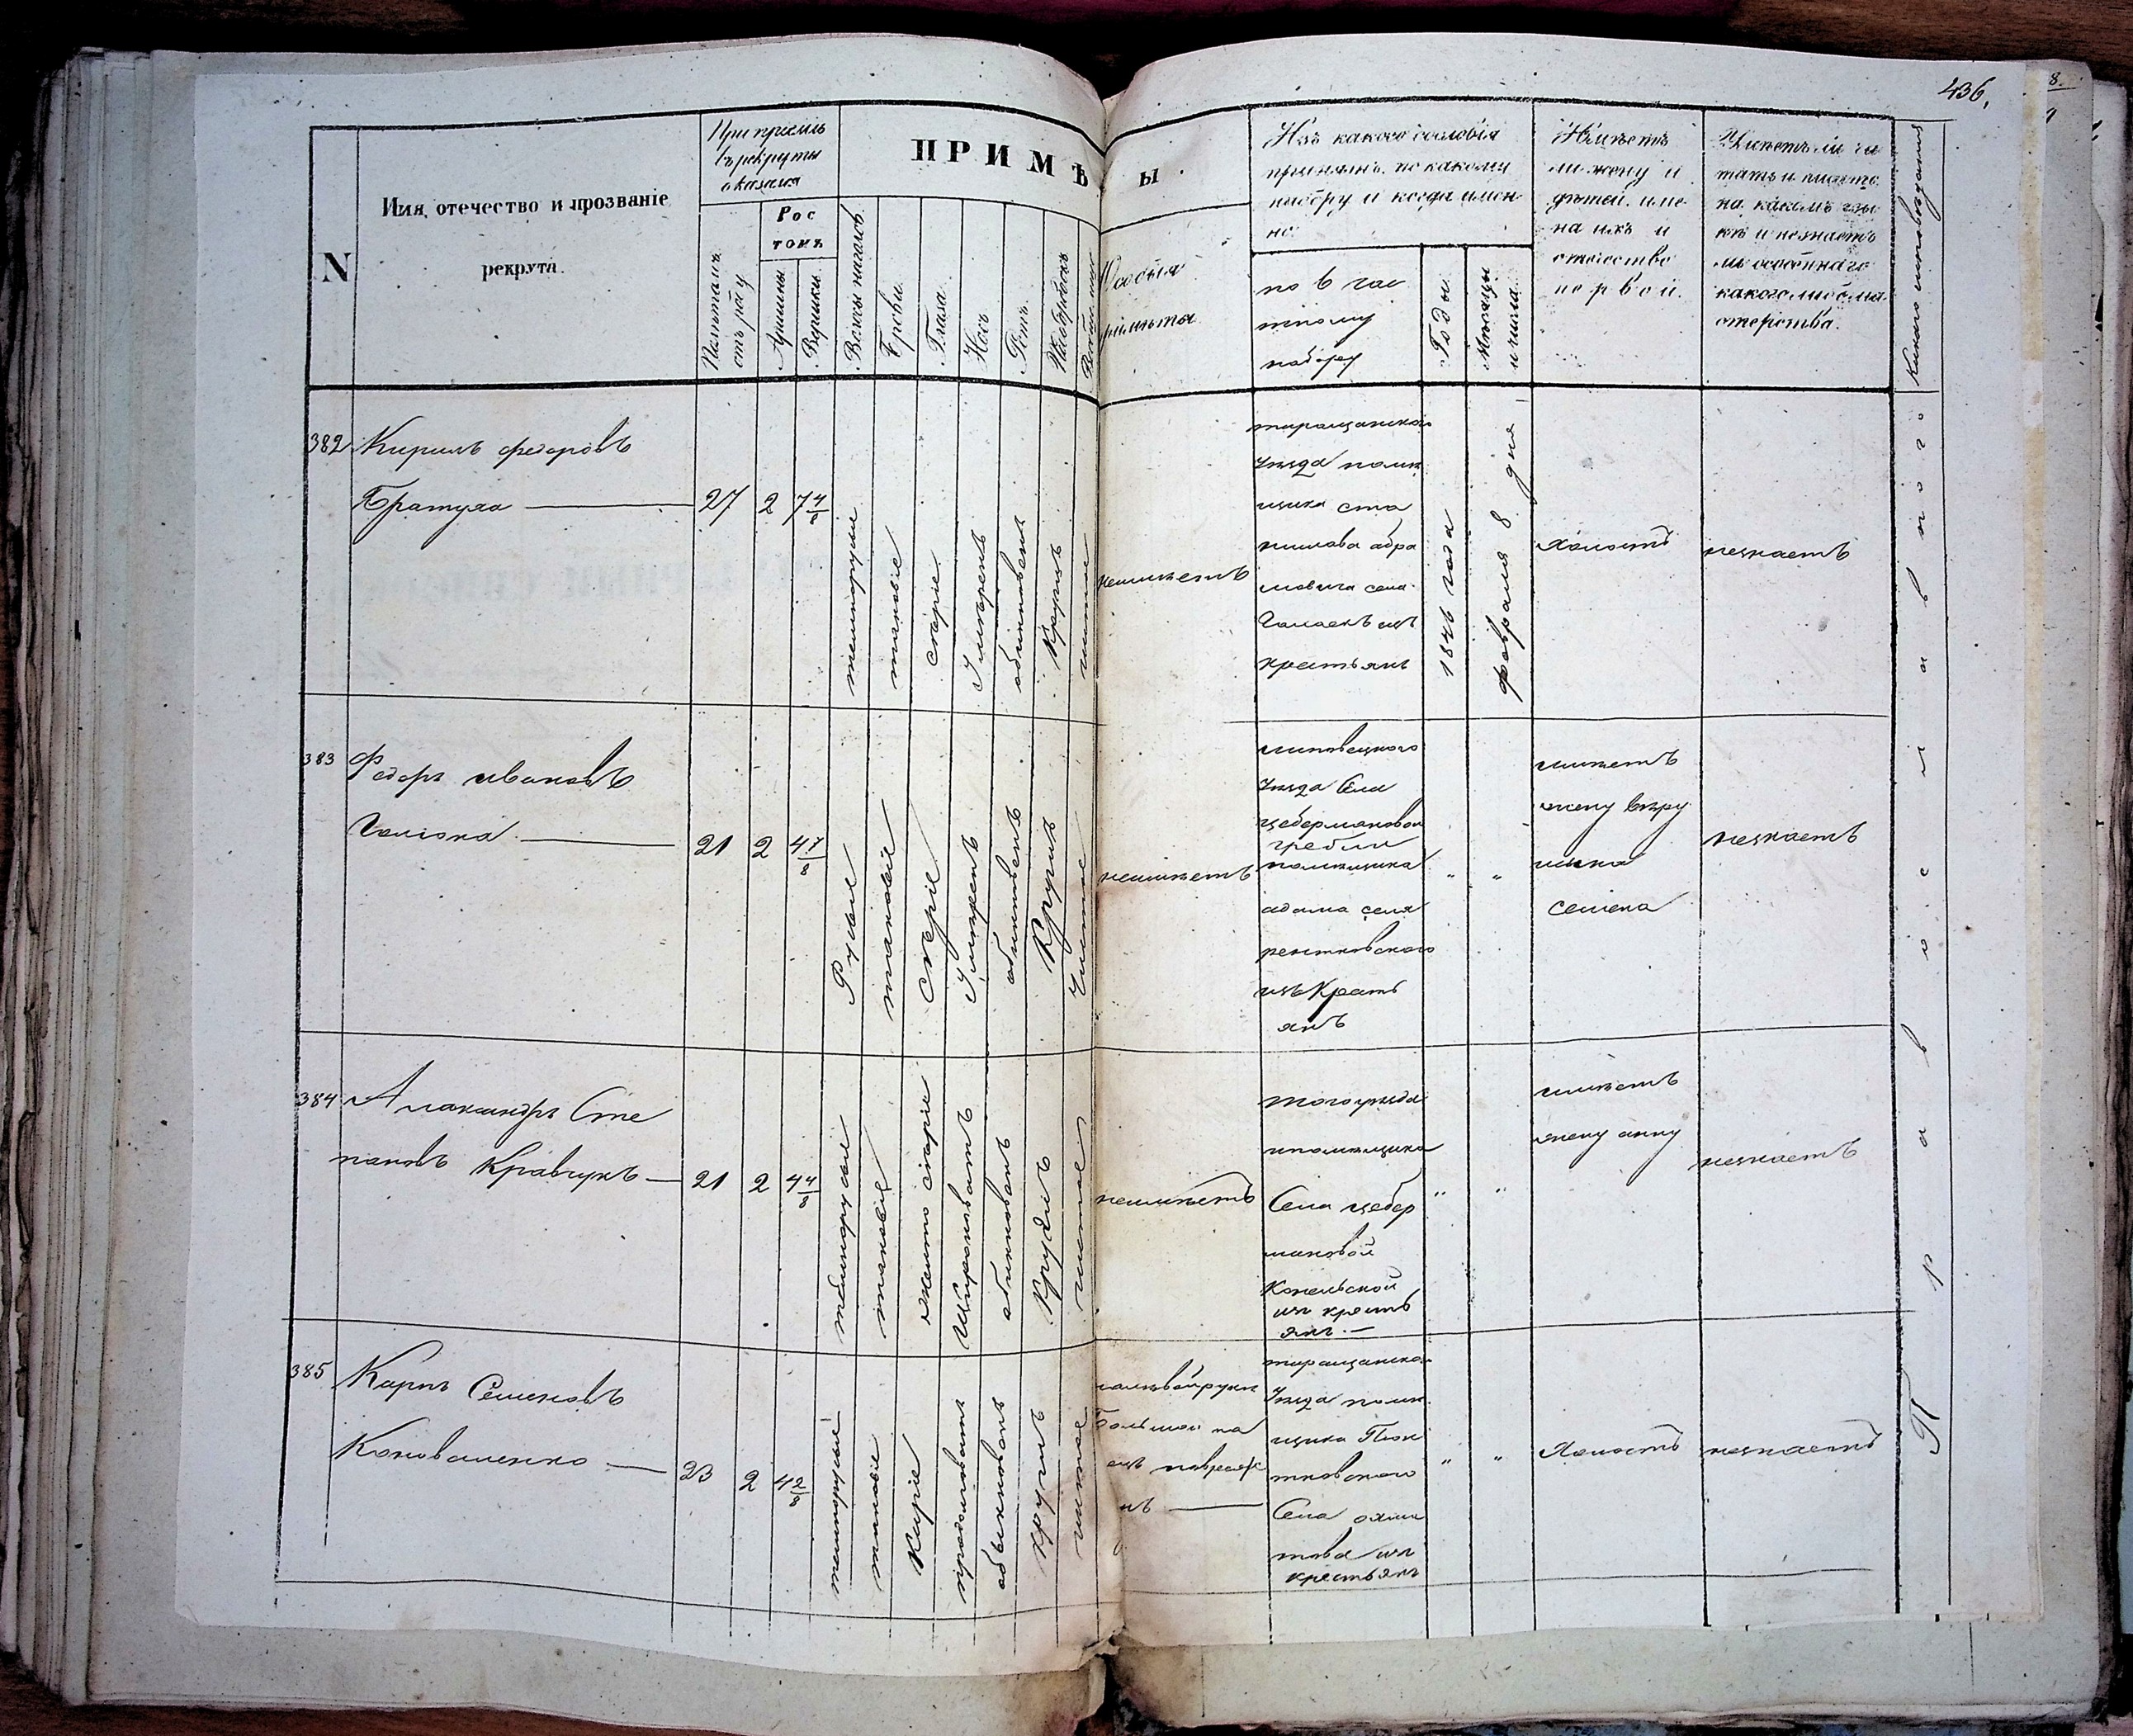 436,
N
Имя, отечество и прозваніе
рекрута.
При пріемѣ
въ рекруты
оказался
Ростомъ
Аршины
Вершки
ПРИМѢТЫ.
Волосы на голов.
Брови
Глаза
Носъ
Ротъ
Подбородокъ
Особыя
примѣты
Изъ какого сословія
принятъ, по какому
набору и когда имен-
но.
по 6 час
тному
набору
Годы
Мѣсяцы
и числа
Имѣетъ
ли жену и
дѣтей, име-
на ихъ и
отечество
первой.
Умѣетъ ли чи
тать и писать,
на какомъ язы
кѣ и не знаетъ
ли особеннаго
какого либо ма-
стерства.
Какого исповѣданія
382
Кирилъ федоровъ
Братуха
27
2
7 4/8
темнорусые
таковіе
сѣріе
Умѣренъ
обікновенъ
Круглъ
чистое
неимѣетъ
таращанскаго
уѣзда помѣ
щика ста
нислава абра
мовича села
крестьянъ
1846 года
февраля 8 дня
холостъ
незнаетъ
Православного
383
Федоръ ивановъ
21
2
Русые
таковіе
Сѣріе
Умѣренъ
Круглъ
Чистое
неимѣетъ
липовецкого
уѣзда Села
цебермановой
гребли
помѣщика
адама
изъ Кресть
янъ
"
"
имѣетъ
жену вѣру
Семена
незнаетъ
384
Алаксандръ Сте
пановъ Кравчукъ
21
2
4 4/8
темнорусые
таковіе
желто сѣріе
Широковатъ
обикновенъ
Круглъ
чистое
неимѣетъ
того уѣзда
ипомѣщика
Села цебер
мановой
из кресть
янъ.
"
"
имѣетъ
жену анну
незнаетъ
385
Карпъ Семеновъ
Коноваленко
23
2
4 2/8
темнорусые
таковіе
Каріе
продолговатъ
обыкновенъ
Круглъ
чистое
Большой па
лецъ поврежде
нъ
таращанскаго
уѣзда помѣ
щика
Села охма
това изъ
крестьянъ
"
"
Холостъ
незнаетъ